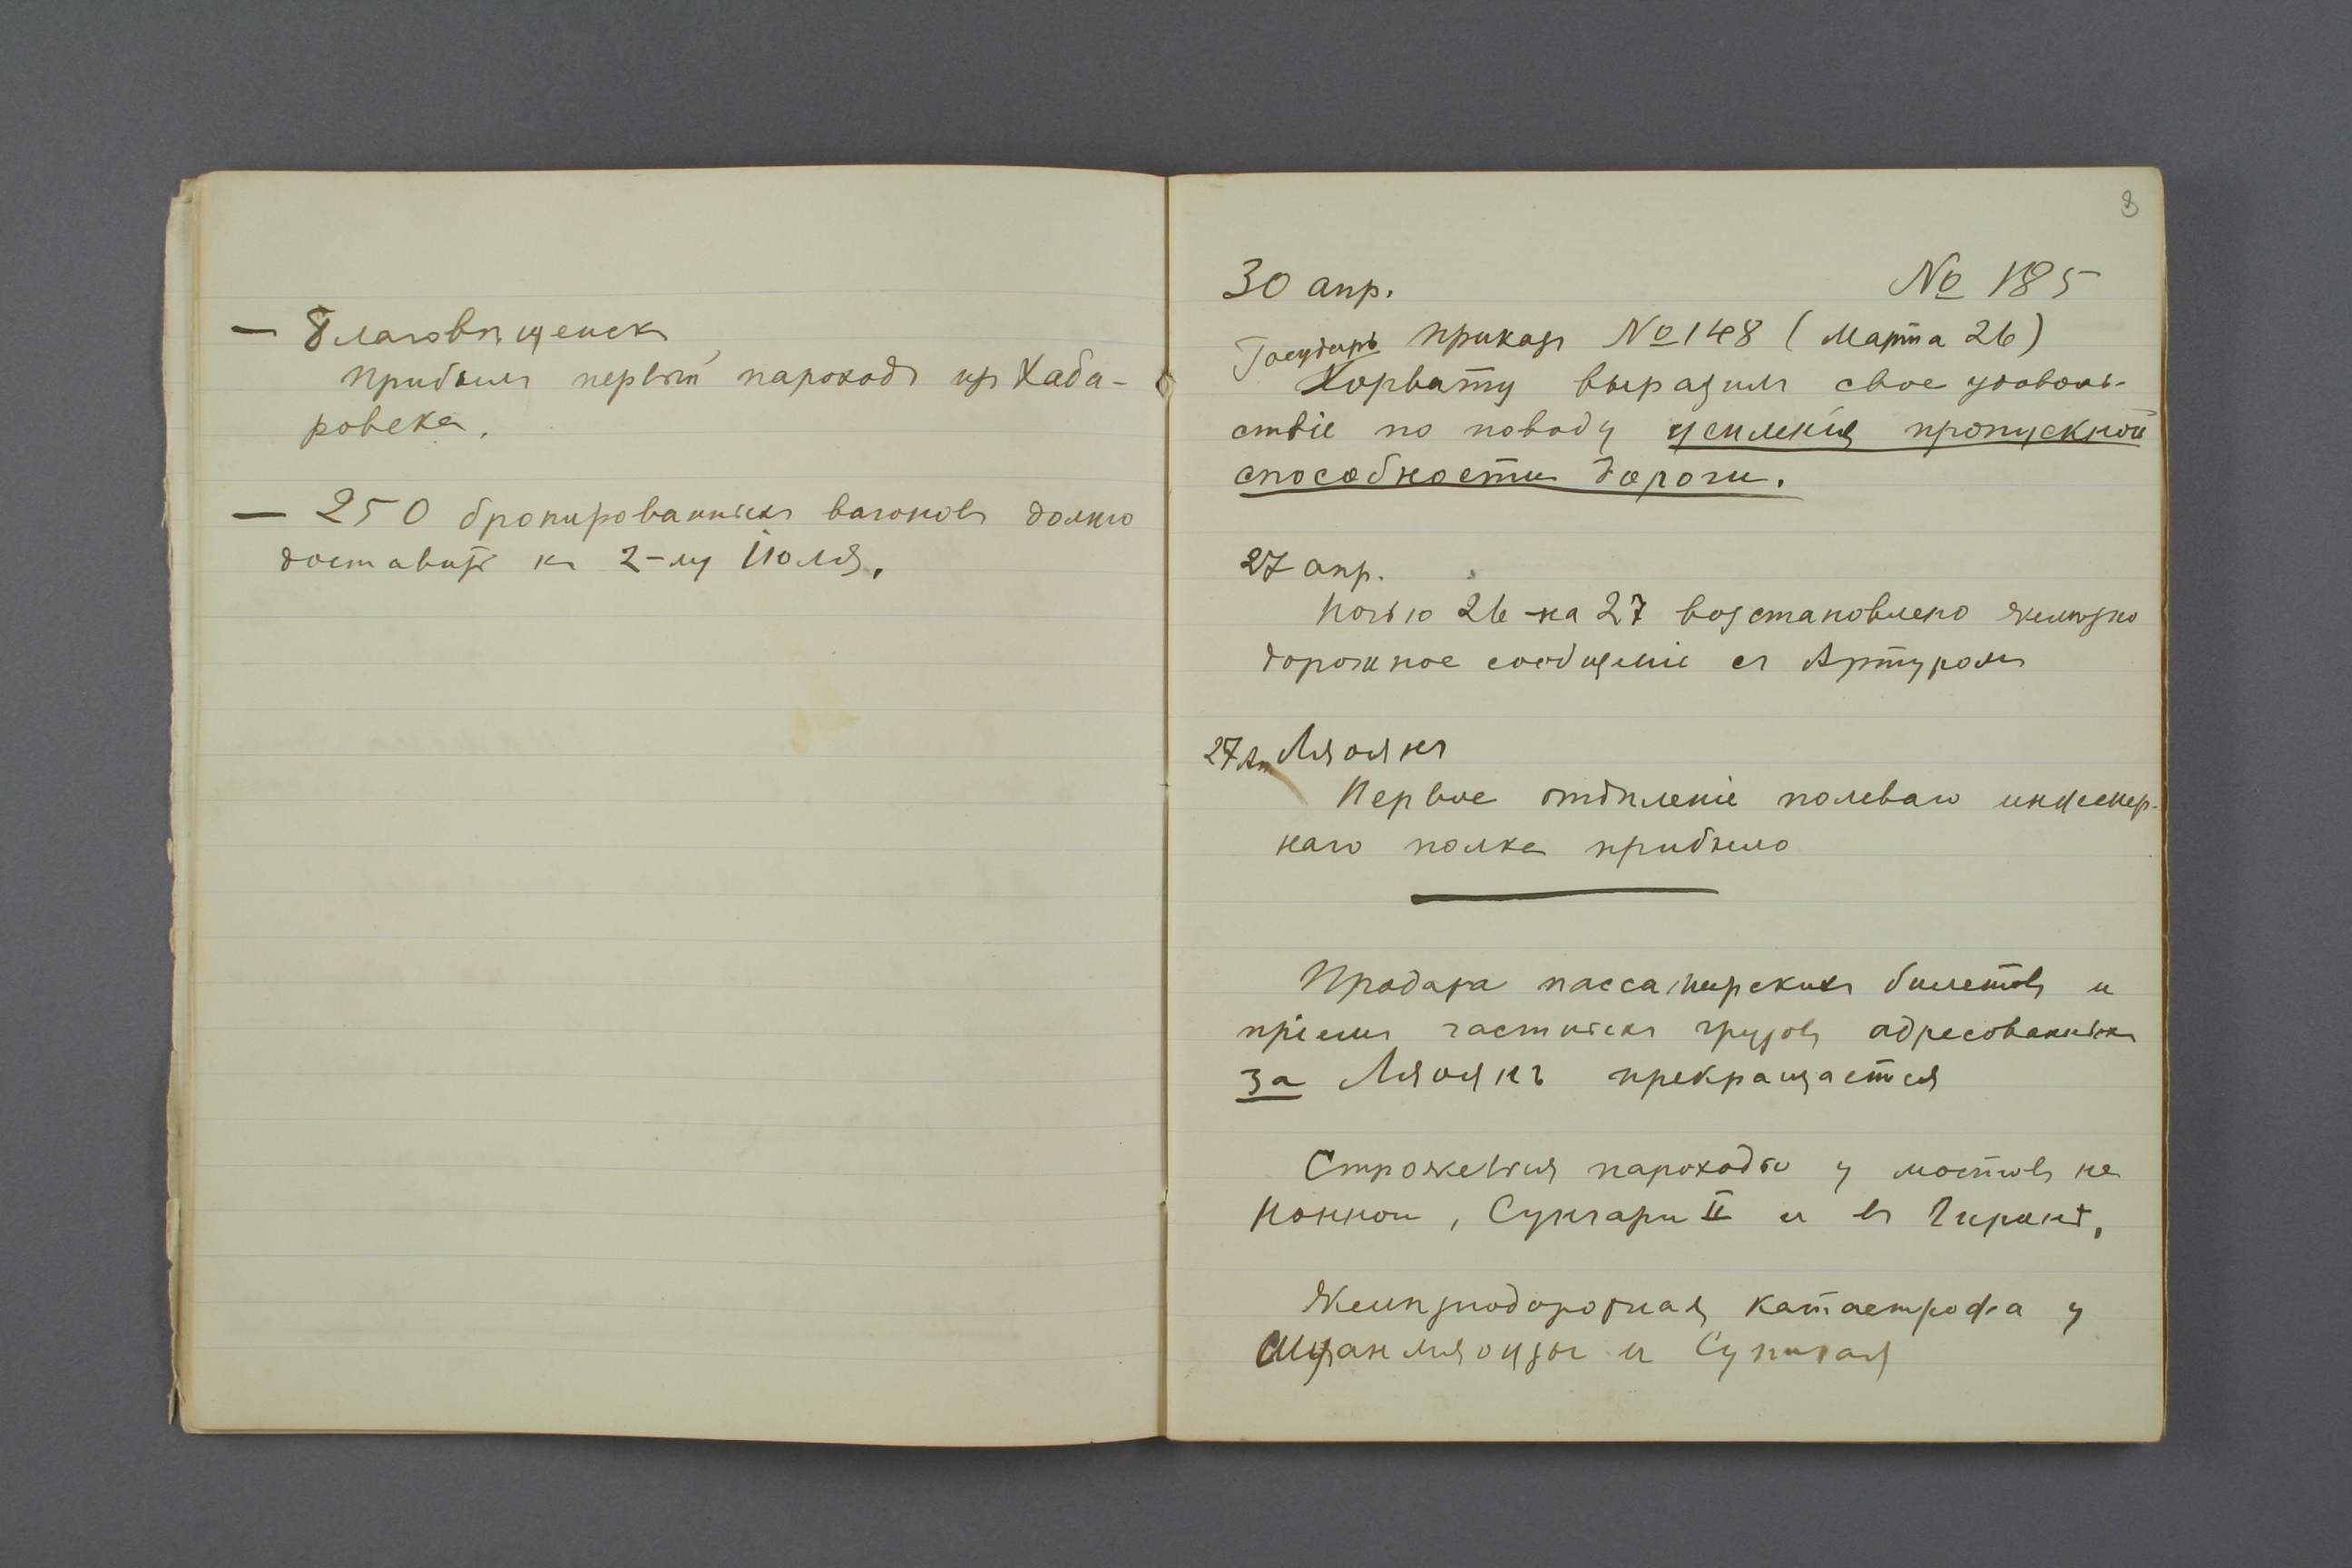 — Благовѣщенскъ
Прибылъ первый пароходъ изъ Хаба-
ровска.
— 250 бронированныхъ вагоновъ должно
доставить къ 2-му Іюля.
8
30 апр. № 185
Государь приказъ № 148 (Марта 26)
Хорвату выразилъ свое удоволь-
ствіе по поводу усиленія пропускной
способности дороги.
27 апр.
Ночью 26 на 27 возстановлено желѣзно
дорожное сообщеніе съ Артуромъ
27 Ап Ляоянъ
Первое отдѣленіе полеваго инженер-
наго полка прибыло
Продажа пассажирскихъ билетовъ и
пріемъ частныхъ грузовъ адресованныхъ
за Ляоянъ прекращается
Сторожевыя пароходы у мостовъ на
Нонни, Сунгари II и въ Гиринѣ.
Желѣзнодорожная катастрофа у
и